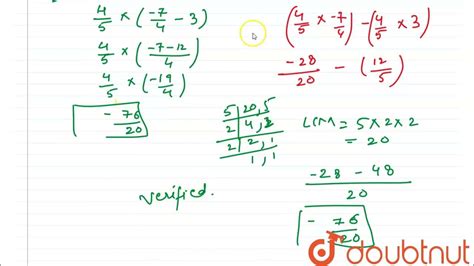 4/5 × (-7/4 - 3)
4/5 × (-7-12/4)
4/5 × (-19/4)
-76/20
(4/5 × -7/4) - (4/5 × 3)
-28/20 - (12/5)
5 | 20, 5
2 | 4, 1
2 | 2, 1
1, 1
LCM = 5×2×2
= 20
-28 - 48
20
- 76/20
verified.
doubtnut